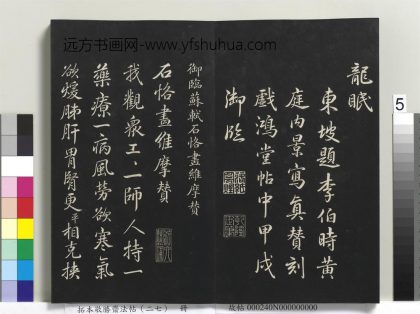 远方书画网-www.yfshuhua.com
龍眠
東坡題李伯時黃
庭內景寫真贊刻
戲鴻堂帖中甲戌
御臨
御臨蘇軾石恪畫維摩贊
石恪畫維摩贊
我觀衆工工一師人持一
藥療一病風勞欲寒氣
欲煖肺肝胃腎更平相克挾
5
拓本敬勝齋法帖(二七) 冊
故帖 000240N000000000